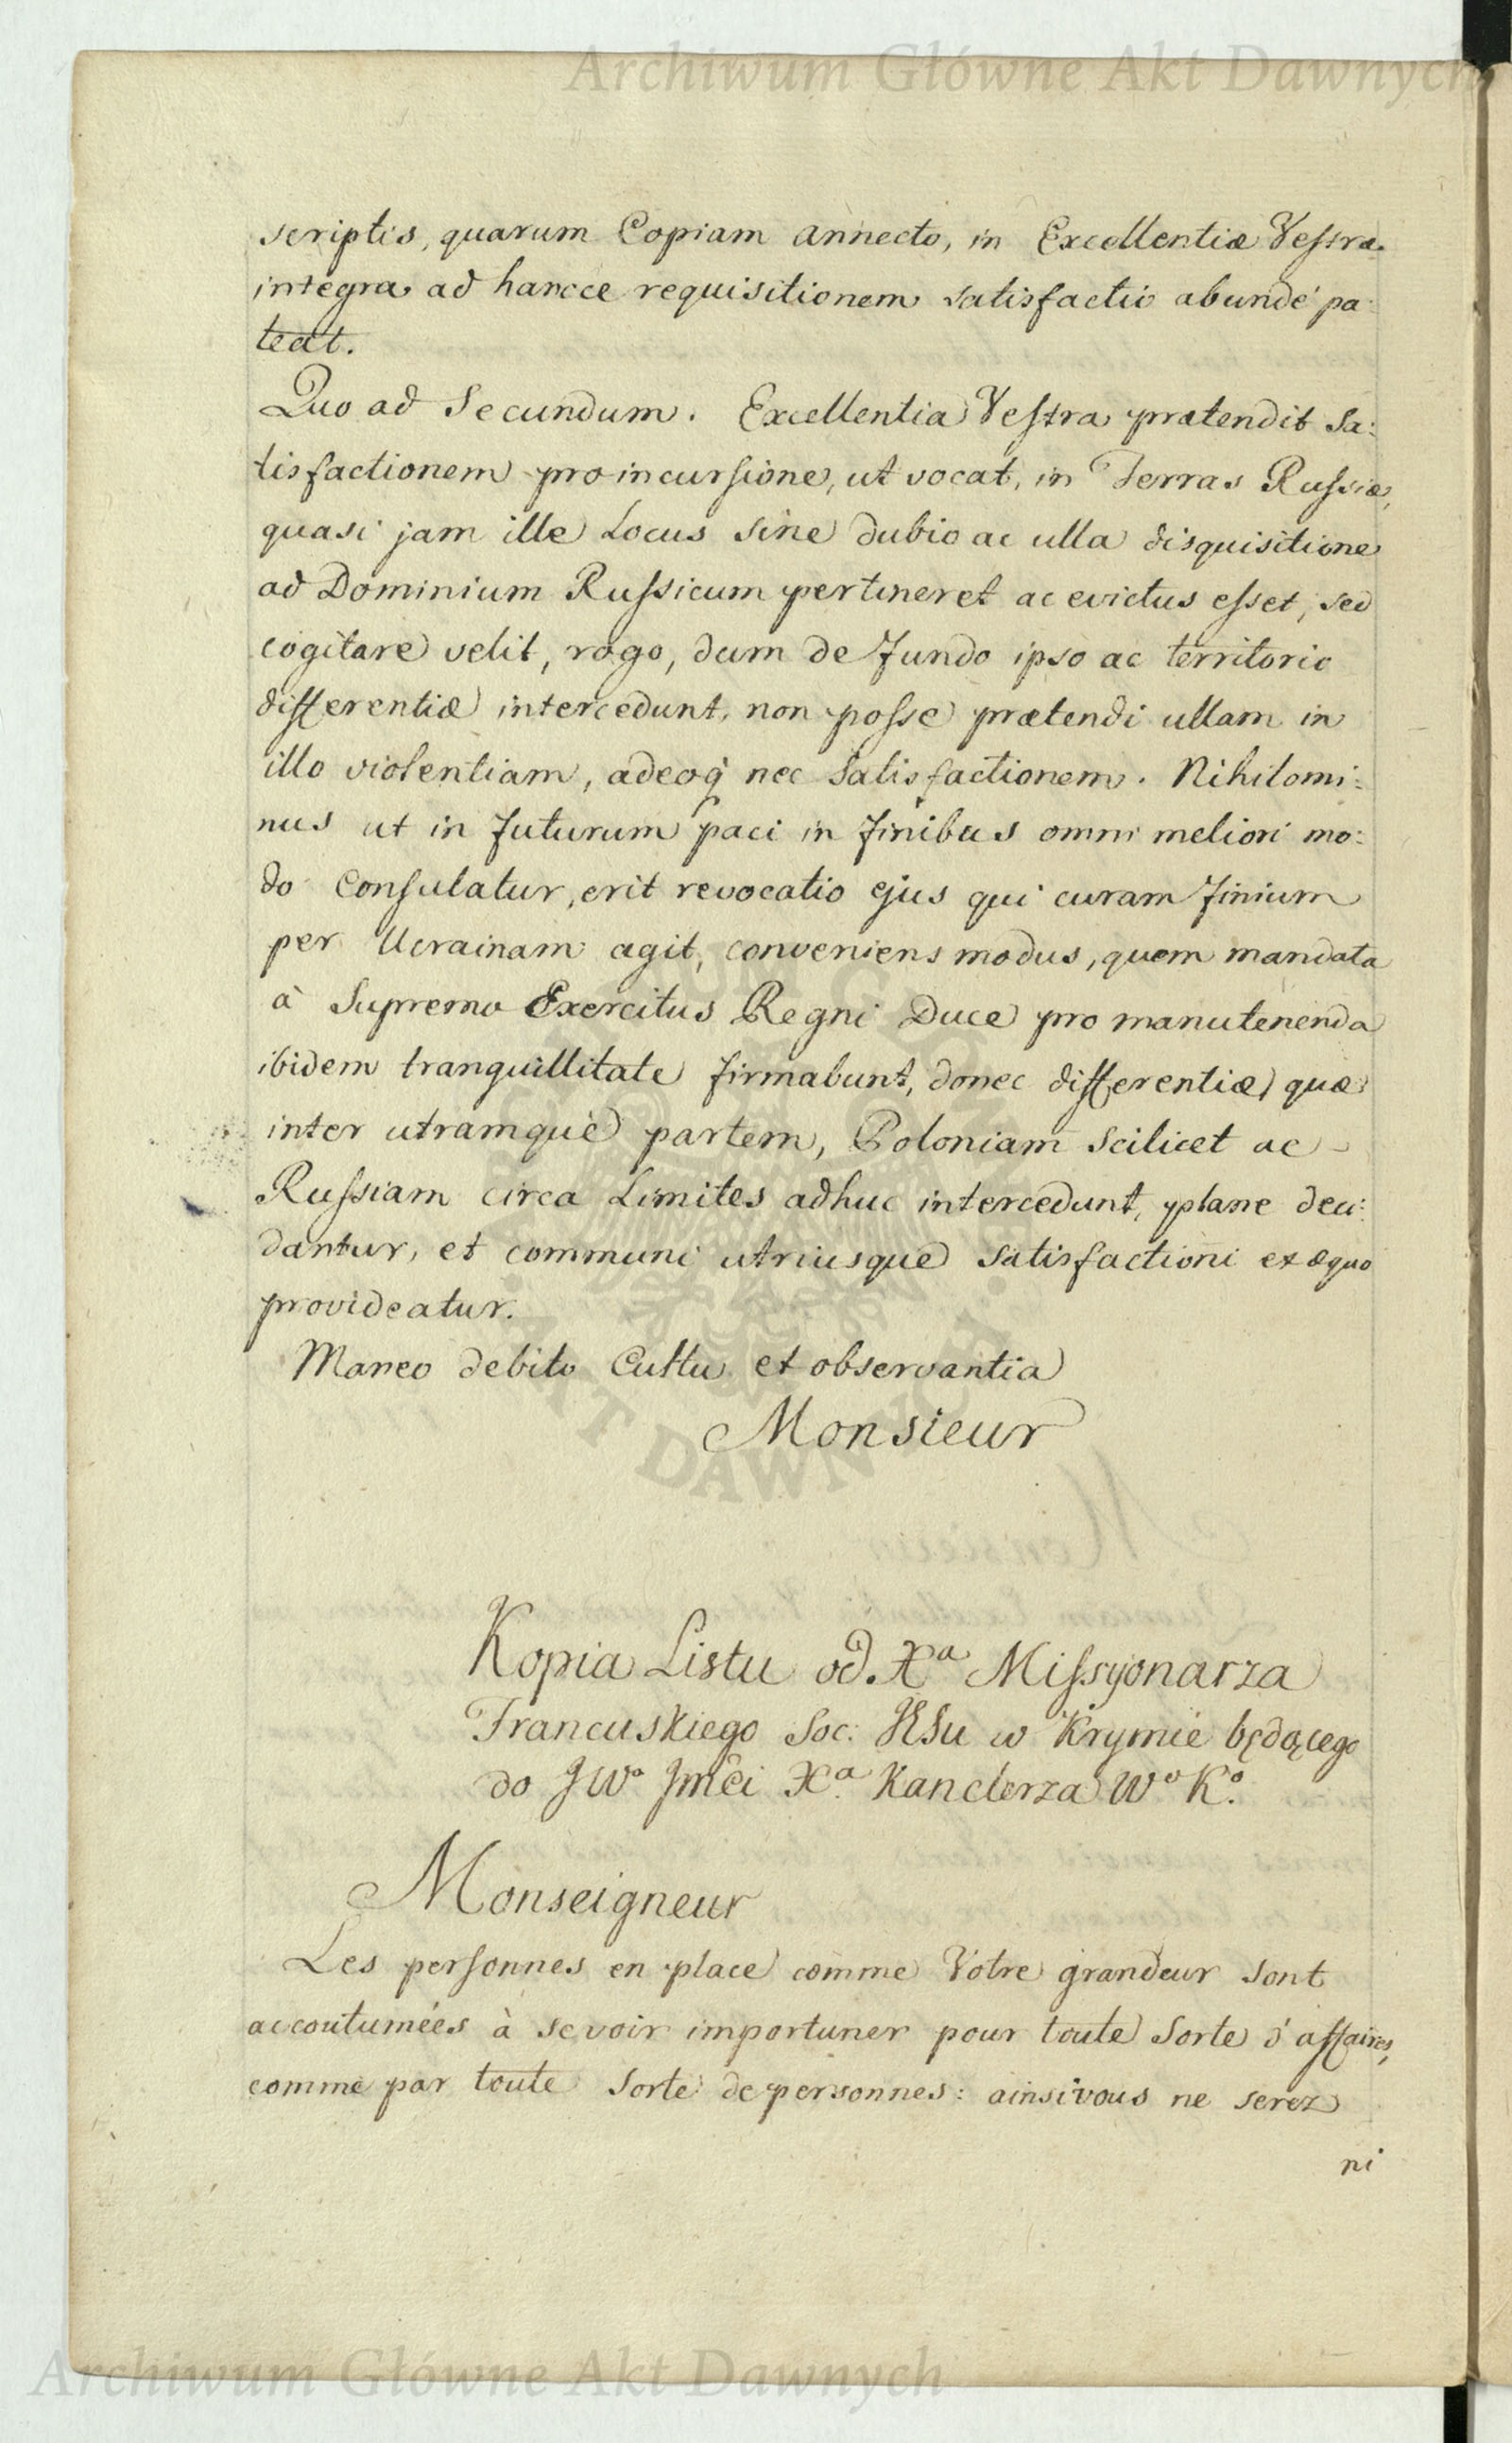 Archiwum Główne Akt Dawnych
scriptis, quarum Copiam annecto, in Excellentiæ Vestræ
integra ad hancce requisitionem satisfactio abundé pa:
teat.
Quo ad Secundum. Excellentia Vestra prætendit Sa:
tisfactionem pro incursione, ut vocat, in Terras Russiæ,
quasi jam ille Locus sine dubio ac ulla disquisitione
ad Dominium Russicum pertineret ac evictus esset, sed
cogitare velit, rogo, dum de fundo ipso ac territorio
differentiæ intercedunt, non posse prætendi ullam in
illo violentiam, adeoq̃ nec Satisfactionem. Nihilomi:
nus ut in futurum paci in finibus omni meliori mo:
do Consulatur, erit revocatio ejus qui curam finium
per Ucrainam agit, conveniens modus, quem mandata
à Supremo Exercitus Regni Duce pro manutenenda
ibidem tranquillitate firmabunt, donec differentiæ quæ
inter utramque partem, Poloniam Scilicet ac
Russiam circa Limites adhuc intercedunt, plane deci:
dantur, et communi utriusque Satisfactioni ex æquo
provideatur.
Maneo debito Cultu et observantia
Monsieur
Kopia Listu od Xᵃ Missyonarza
Francuskiego Soc: JESu w Krymie będącego
do JWº Jmĉi Xᵃ. Kanclerza Wº Kº.
Monseigneur
Les personnes en place comme Votre grandeur sont
accoutumées à se voir importuner pour toute Sorte d'affaires,
comme par toute Sorte de personnes: ainsi vous ne serez
ni
Archiwum Główne Akt Dawnych